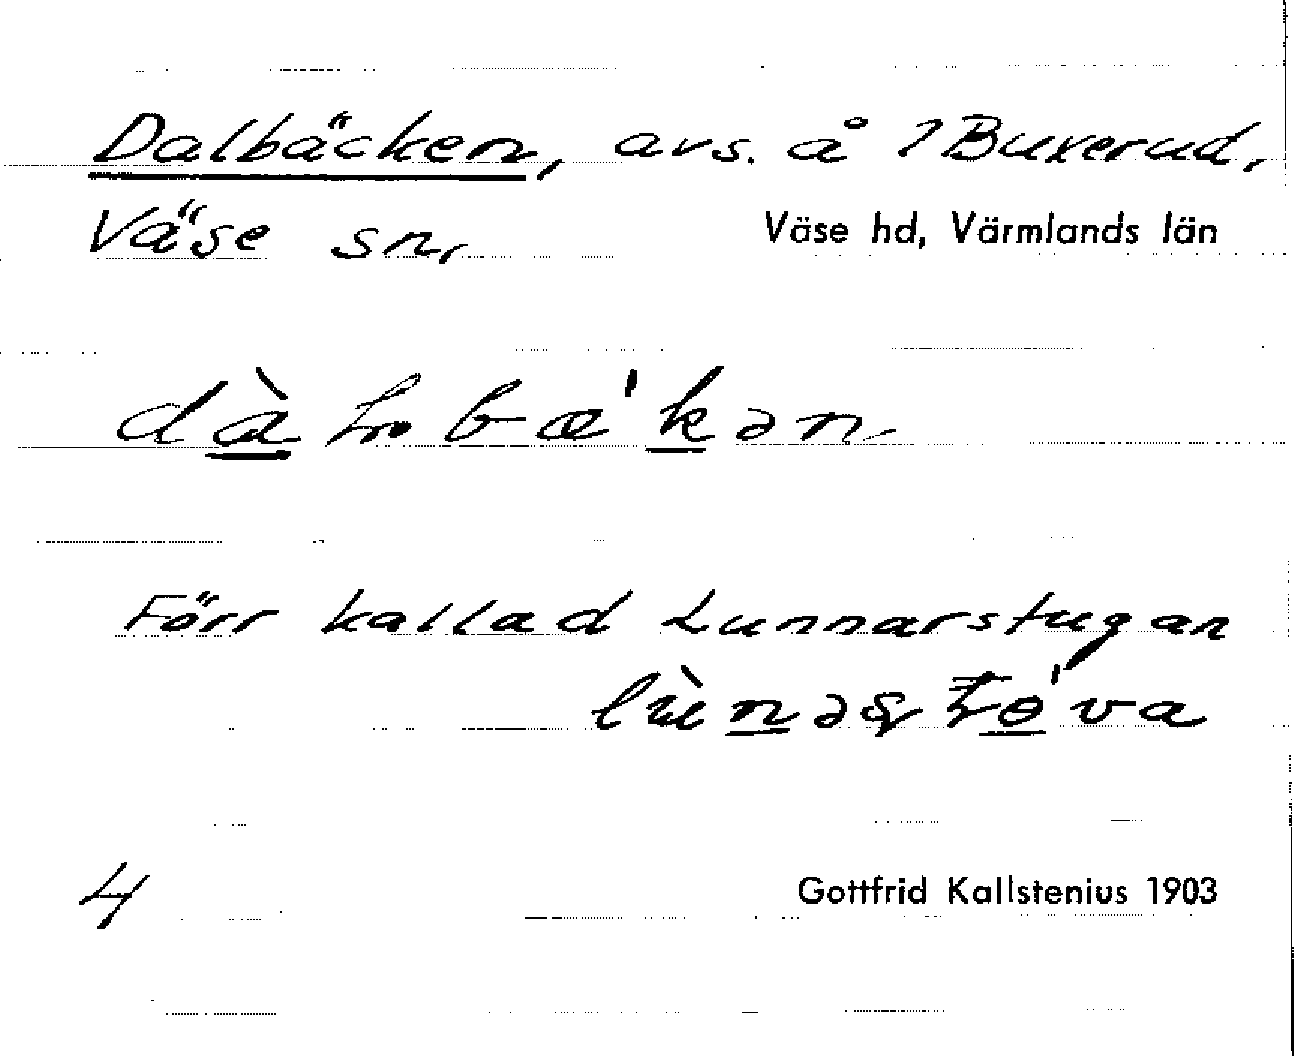 Dalbäcken, avs. å 1 Buxerud,
Väse sn, Väse hd, Värmlands län
Förr kallad Lunnarstugan
4 Gottfrid Kallstenius 1903